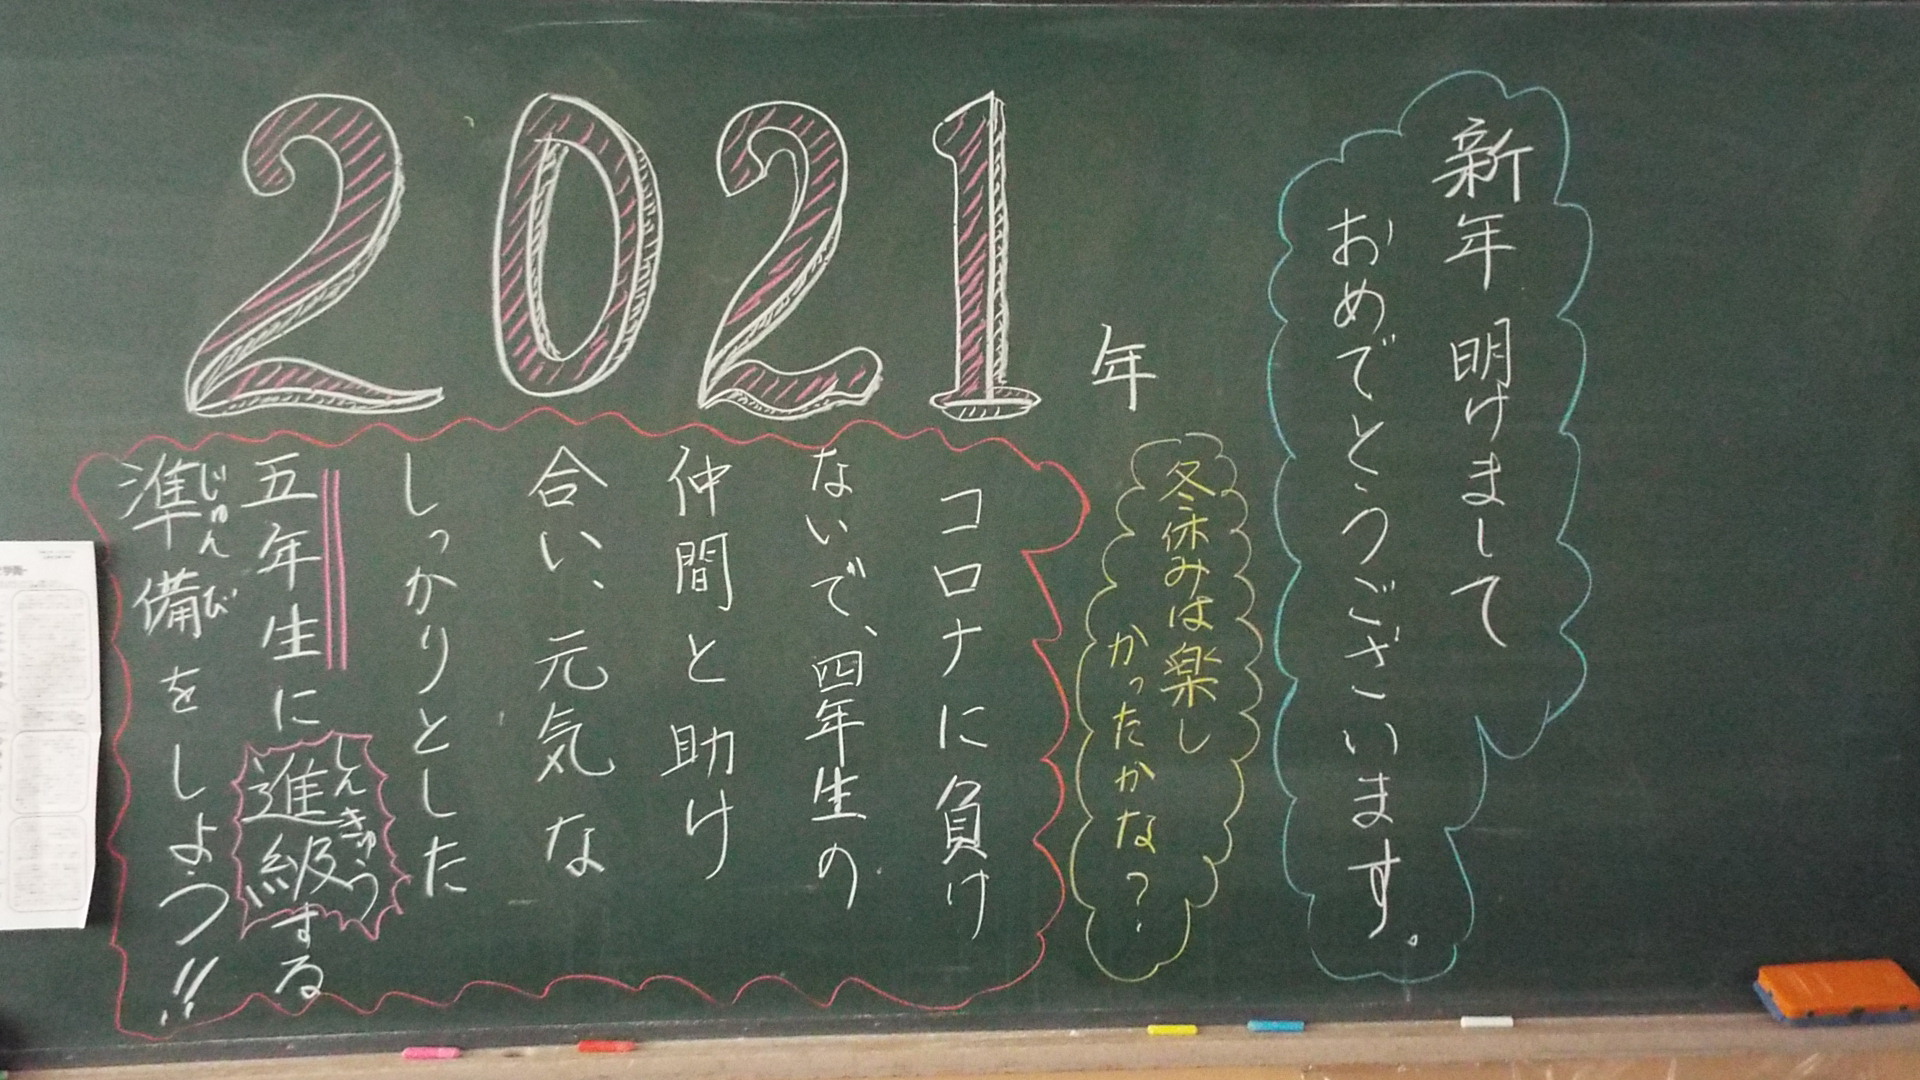 新年 明けまして
おめでとうございます。
2021年
冬休みは楽し
かったかな?
コロナに負け
ないで、四年生の
仲間と助け
合い、元気な
しっかりとした
五年生に進級する
しんきゅう
準備をしよう!!
じゅんび